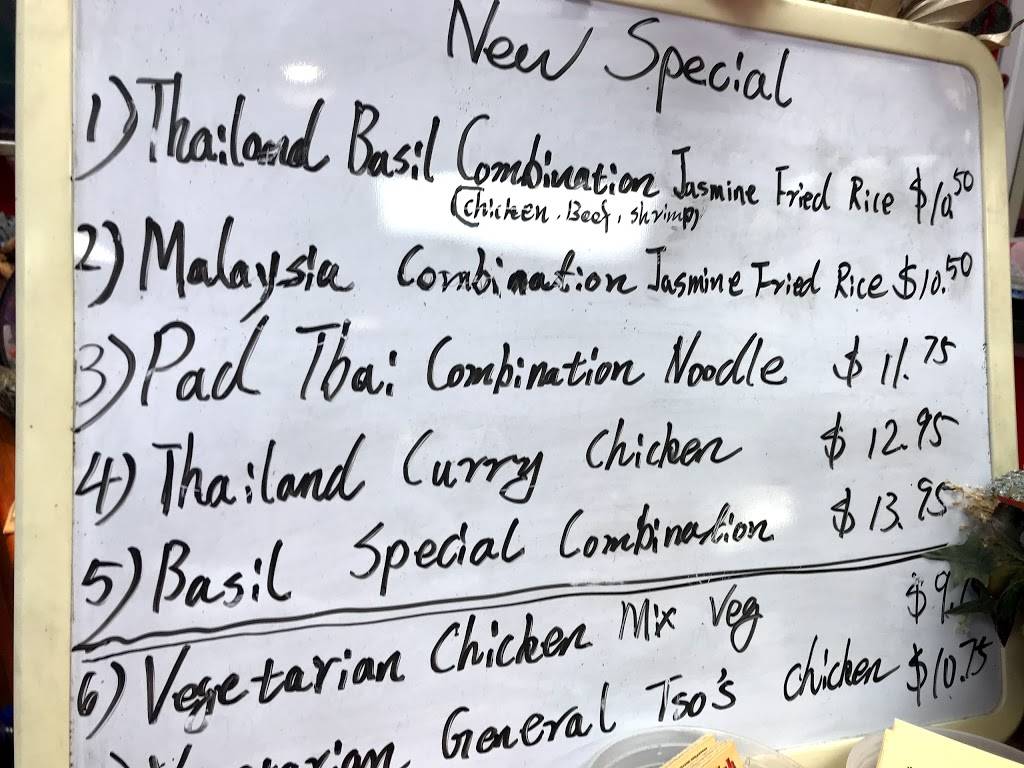 New Special
1) Thailand Basil Combination Jasmine Fried Rice $10.50
(Chicken, Beef, shrimp)
2) Malaysia Combination Jasmine Fried Rice $10.50
3) Pad Thai Combination Noodle $11.75
4) Thailand Curry Chicken $12.95
5) Basil Special Combination $13.95
6) Vegetarian Chicken Mix Veg
General Tso's Chicken $10.75